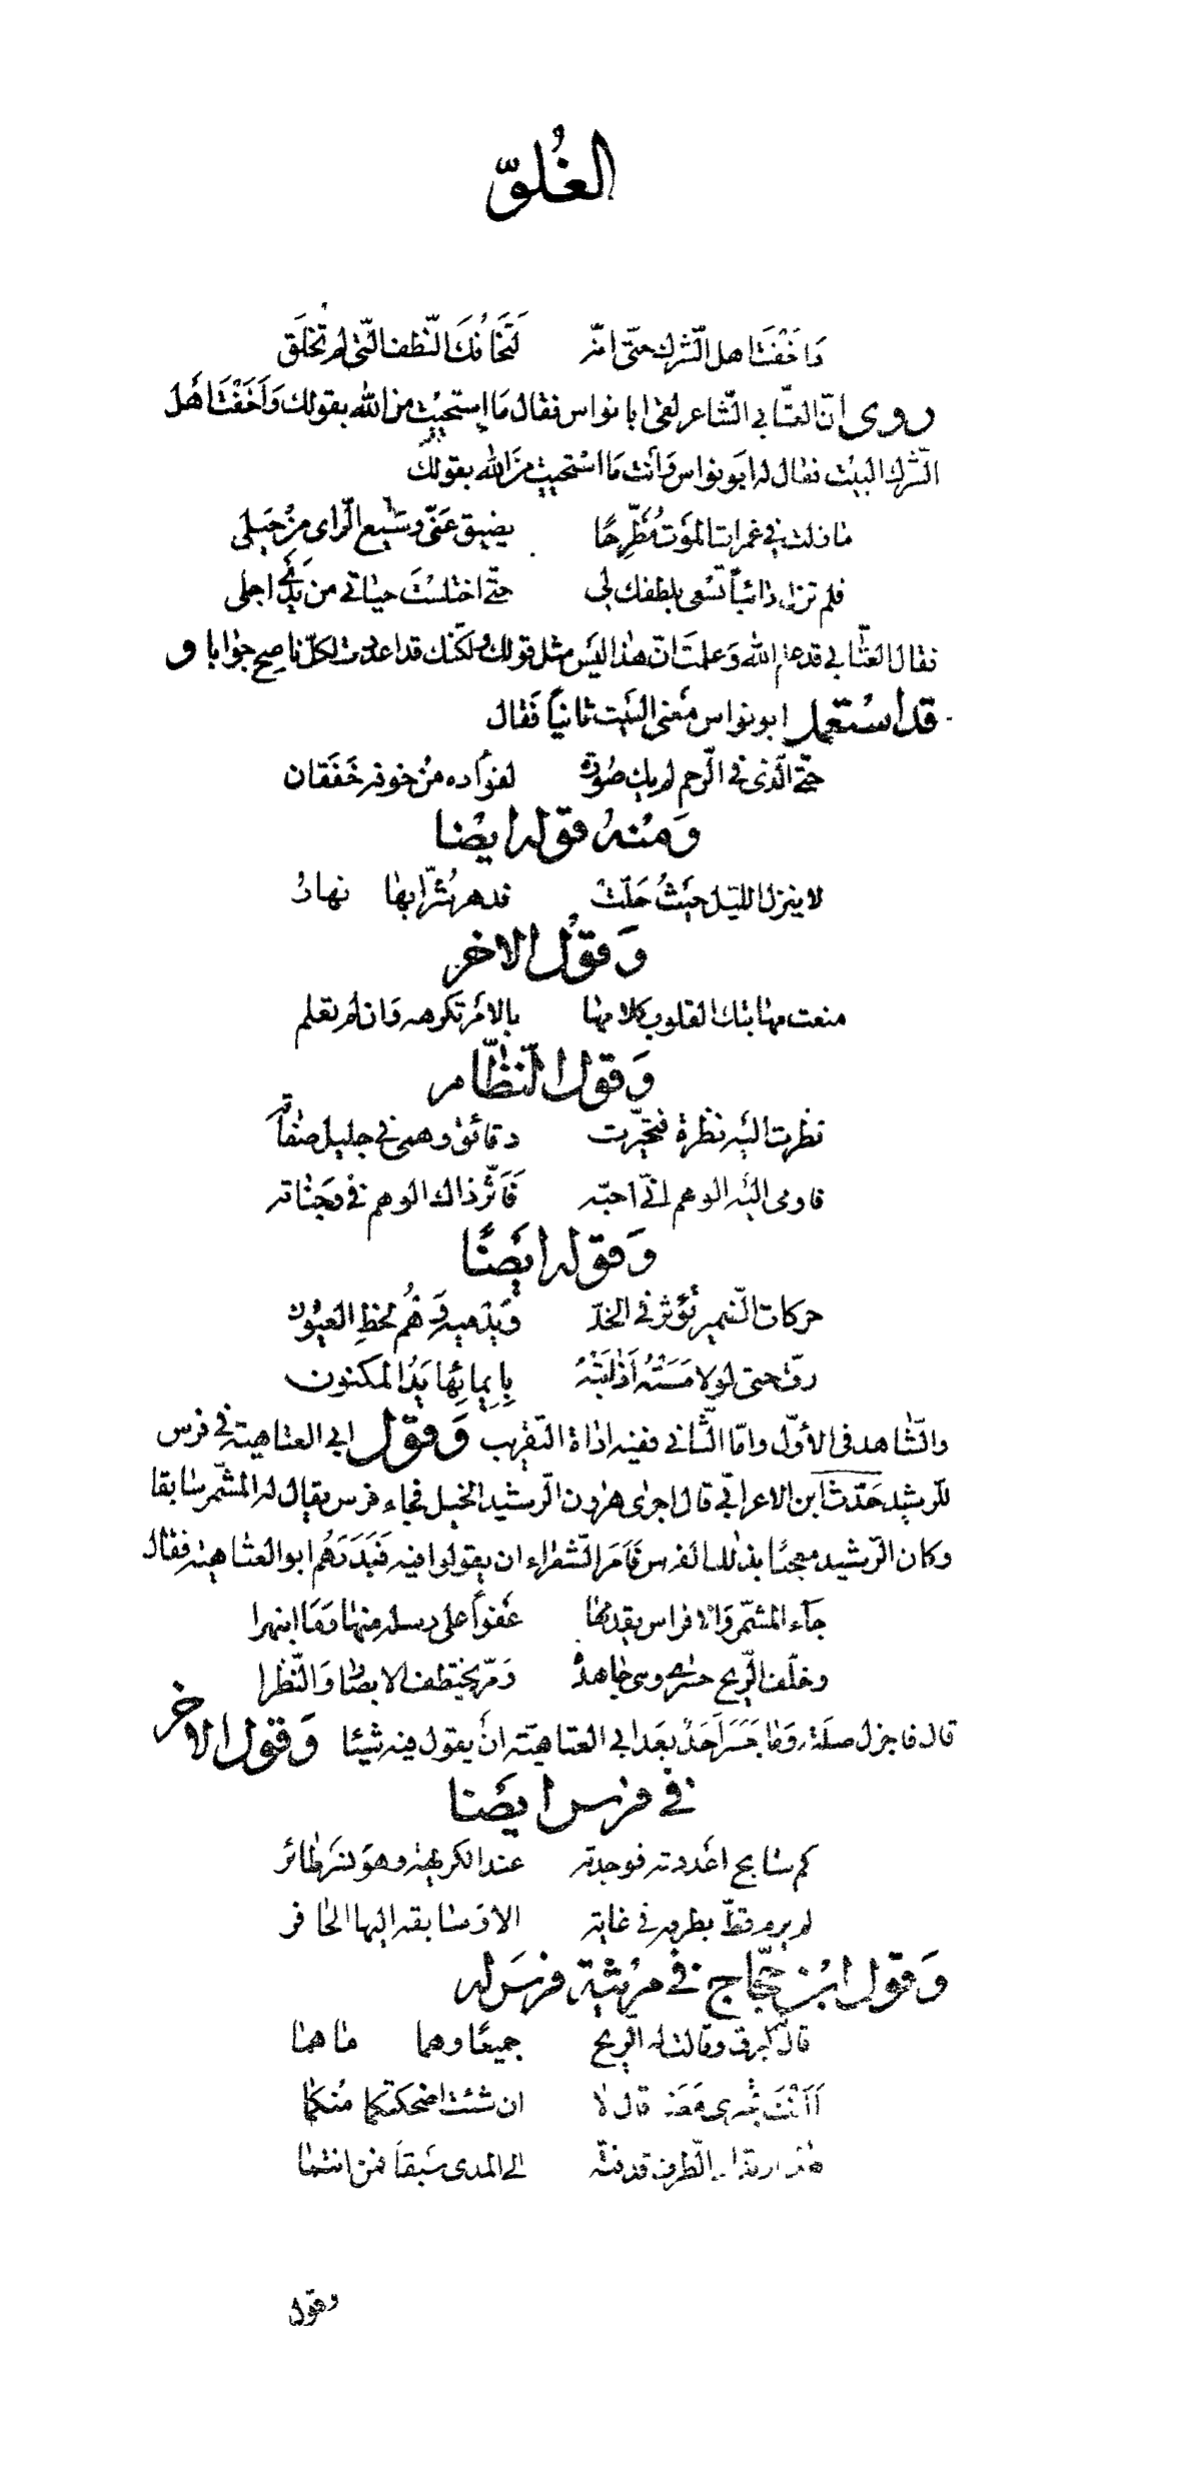 الغُلوّ
وَاَخَفْتَ اهل الشّرك حتّى انّه لَتَخَافُكَ النّطف الّتى لم تُخلَق
روى انّ العتّابي الشّاعر لقى ابا نواس فقال مَا اِستحييْت من الله بقولك وَاَخَفْتَ اَهل
الشّرك البيْت فقال له ابو نواس وَأنت مَا اسْتحييت مِنَ الله بقولك
مٰا زلت في غمرات المَوت مُطَّرِحًا يضيق عَنّى وسٰيع الرّاى مِنْ حِيَلى
فلم تزل دٰائبًا تسْعى بلطفك لى حتّى اختلسْتَ حيٰاتي من يَدَىْ اجلى
فقال العتّابي قد علم الله وَعلمتَ انّ هٰذا ليَس مثل قولك ولكنّك قد اعددت لكلّ ناصِح جوٰابا و
قد اسْتعمل ابو نواس مَعنى البَيت ثٰانيًا فَقٰال
حتّى الّذى في الرّحم لم يك صُورَة لفؤٰاده منْ خوفه خَفَقان
وَمنْهُ قوله ايضا
لا ينزل اللّيل حيَثُ حَلّتْ فدهر شُرّابهٰا نهارُ
وَقوْل الاٰخر
منعت مهٰابتك القلوب كلامهٰا بالامْر تكرهه وَان لم تعلم
وَقول النّظّام
نظرت اليْه نظرة فتحيّرت دقائق وهمى في جليل صفٰاته
فاومى اليْه الوهم انّى احبّه فَاَثّر ذاك الوهم في وجَنٰاته
وَقوله ايَضًا
حركات الضّمير تؤثر في الخدّ وَيُدْميه وَهْمُ لحظِ العيُون
رقّ حتى لو لامَسَتْهُ اَذٰابَتْهُ بِايمائِهَا يَدُ المكنون
والشّاهد فى الأوّل وامّا الثّانى ففيه ادٰاة التّقريب وَقوْل ابي العتاهية في فرس
للرشيد حَدّث ابن الاعرابّي قال اجرى هٰرون الرّشيد الخيل فجاء فرس يقال له المشمّر سٰابقا
وكان الرّشيد معجبًا بذٰلك الفرس فَاَمَر الشّعراء ان يقولوا فيه فَبَدَرَهُم ابو العتٰاهية فقٰال
جآء المشمّر وَالافراس يقدمهٰا عَفوًا على رسله منهٰا وَمَا انبهرا
وخلّف الرّيح حسْرى وهى جٰاهدة وَمرّ يختطف الابصٰار وَالنّظرا
قال فاجزل صلَته وَمٰا جَسَر اَحَدٌ بَعد ابي العتاهيّة انْ يقول فيه شيْئا وَقوْل الاٰخر
في فرس ايَضنا
كم سٰابح اعْددته فوجدته عند الكريهة وهوَ نسَر طٰائر
لم يرم قطّ بطرفه في غاية الا وَسٰابقه اليها الحٰافر
وَقول ابْن حجّاج في مرْثية فرسَ له
قال له البرق وقالت له الرّيح جميعًا وهما مٰا همٰا
أاَنْتَ تجرى مَعَنا قال لا ان شئت اضحكتكما منْكمٰا
هٰذا ارتداد الطّرف قد فتّه الى المدى سَبقا فمن انتمٰا
وقول